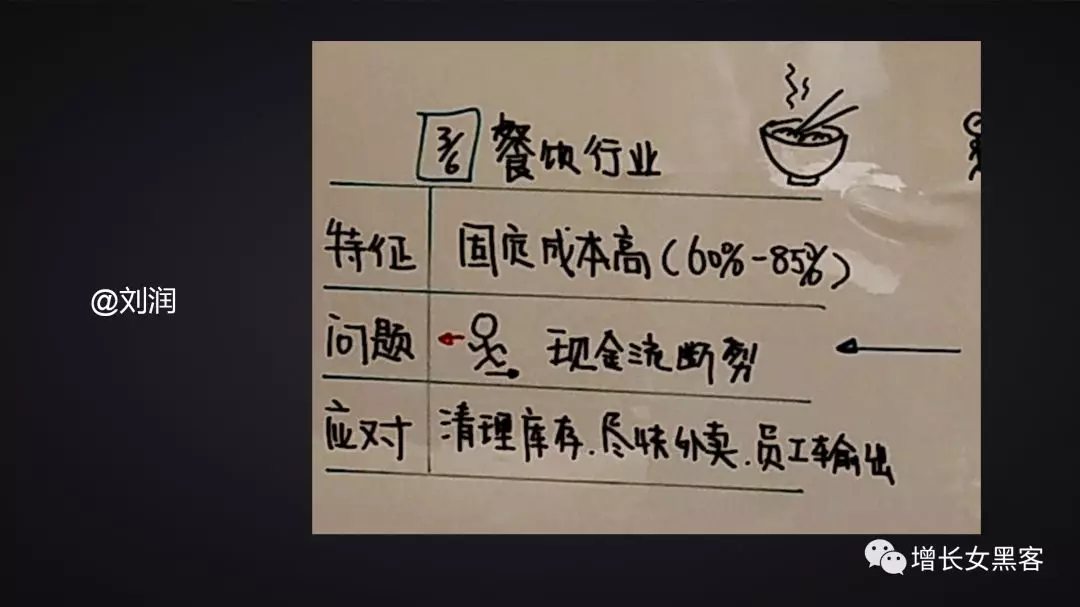 3/6 餐饮行业
特征 固定成本高(60%-85%)
@刘润
问题 现金流断裂
应对 清理库存.尽快外卖.员工输出
增长女黑客